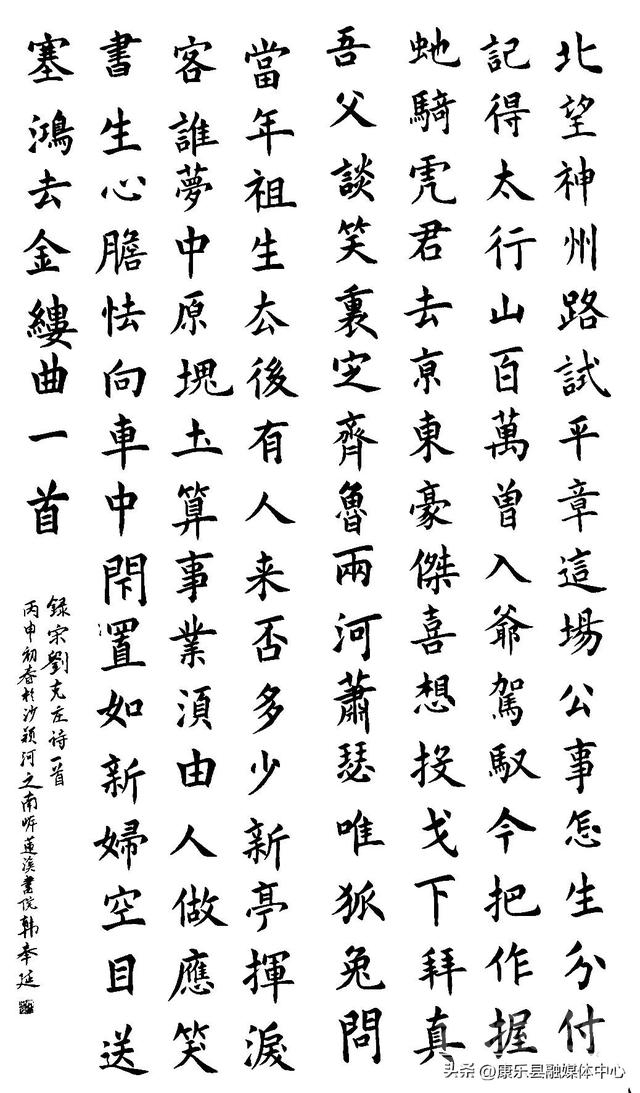 北望神州路試平章這場公事怎生分付
記得太行山百萬曾入爺駕馭今把作握
虵騎虎君去京東豪傑喜想投戈下拜真
吾父談笑裏定齊魯兩河蕭瑟唯狐兔問
當年祖生去後有人来否多少新亭揮淚
客誰夢中原塊土算事業須由人做應笑
書生心膽怯向車中閉置如新婦空目送
塞鴻去金縷曲一首
録宋劉克庄诗一首
丙申初春於沙颖河之南岸蓮溪書院韩奉延
头条 @康乐县融媒体中心